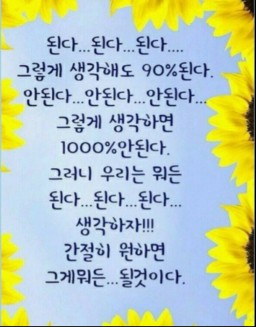 된다...된다...된다....
그렇게 생각해도 90%된다.
안된다...안된다...안된다...
그렇게 생각하면
1000%안된다.
그러니 우리는 뭐든
된다...된다...된다...
생각하자!!!
간절히 원하면
그게뭐든...될것이다.